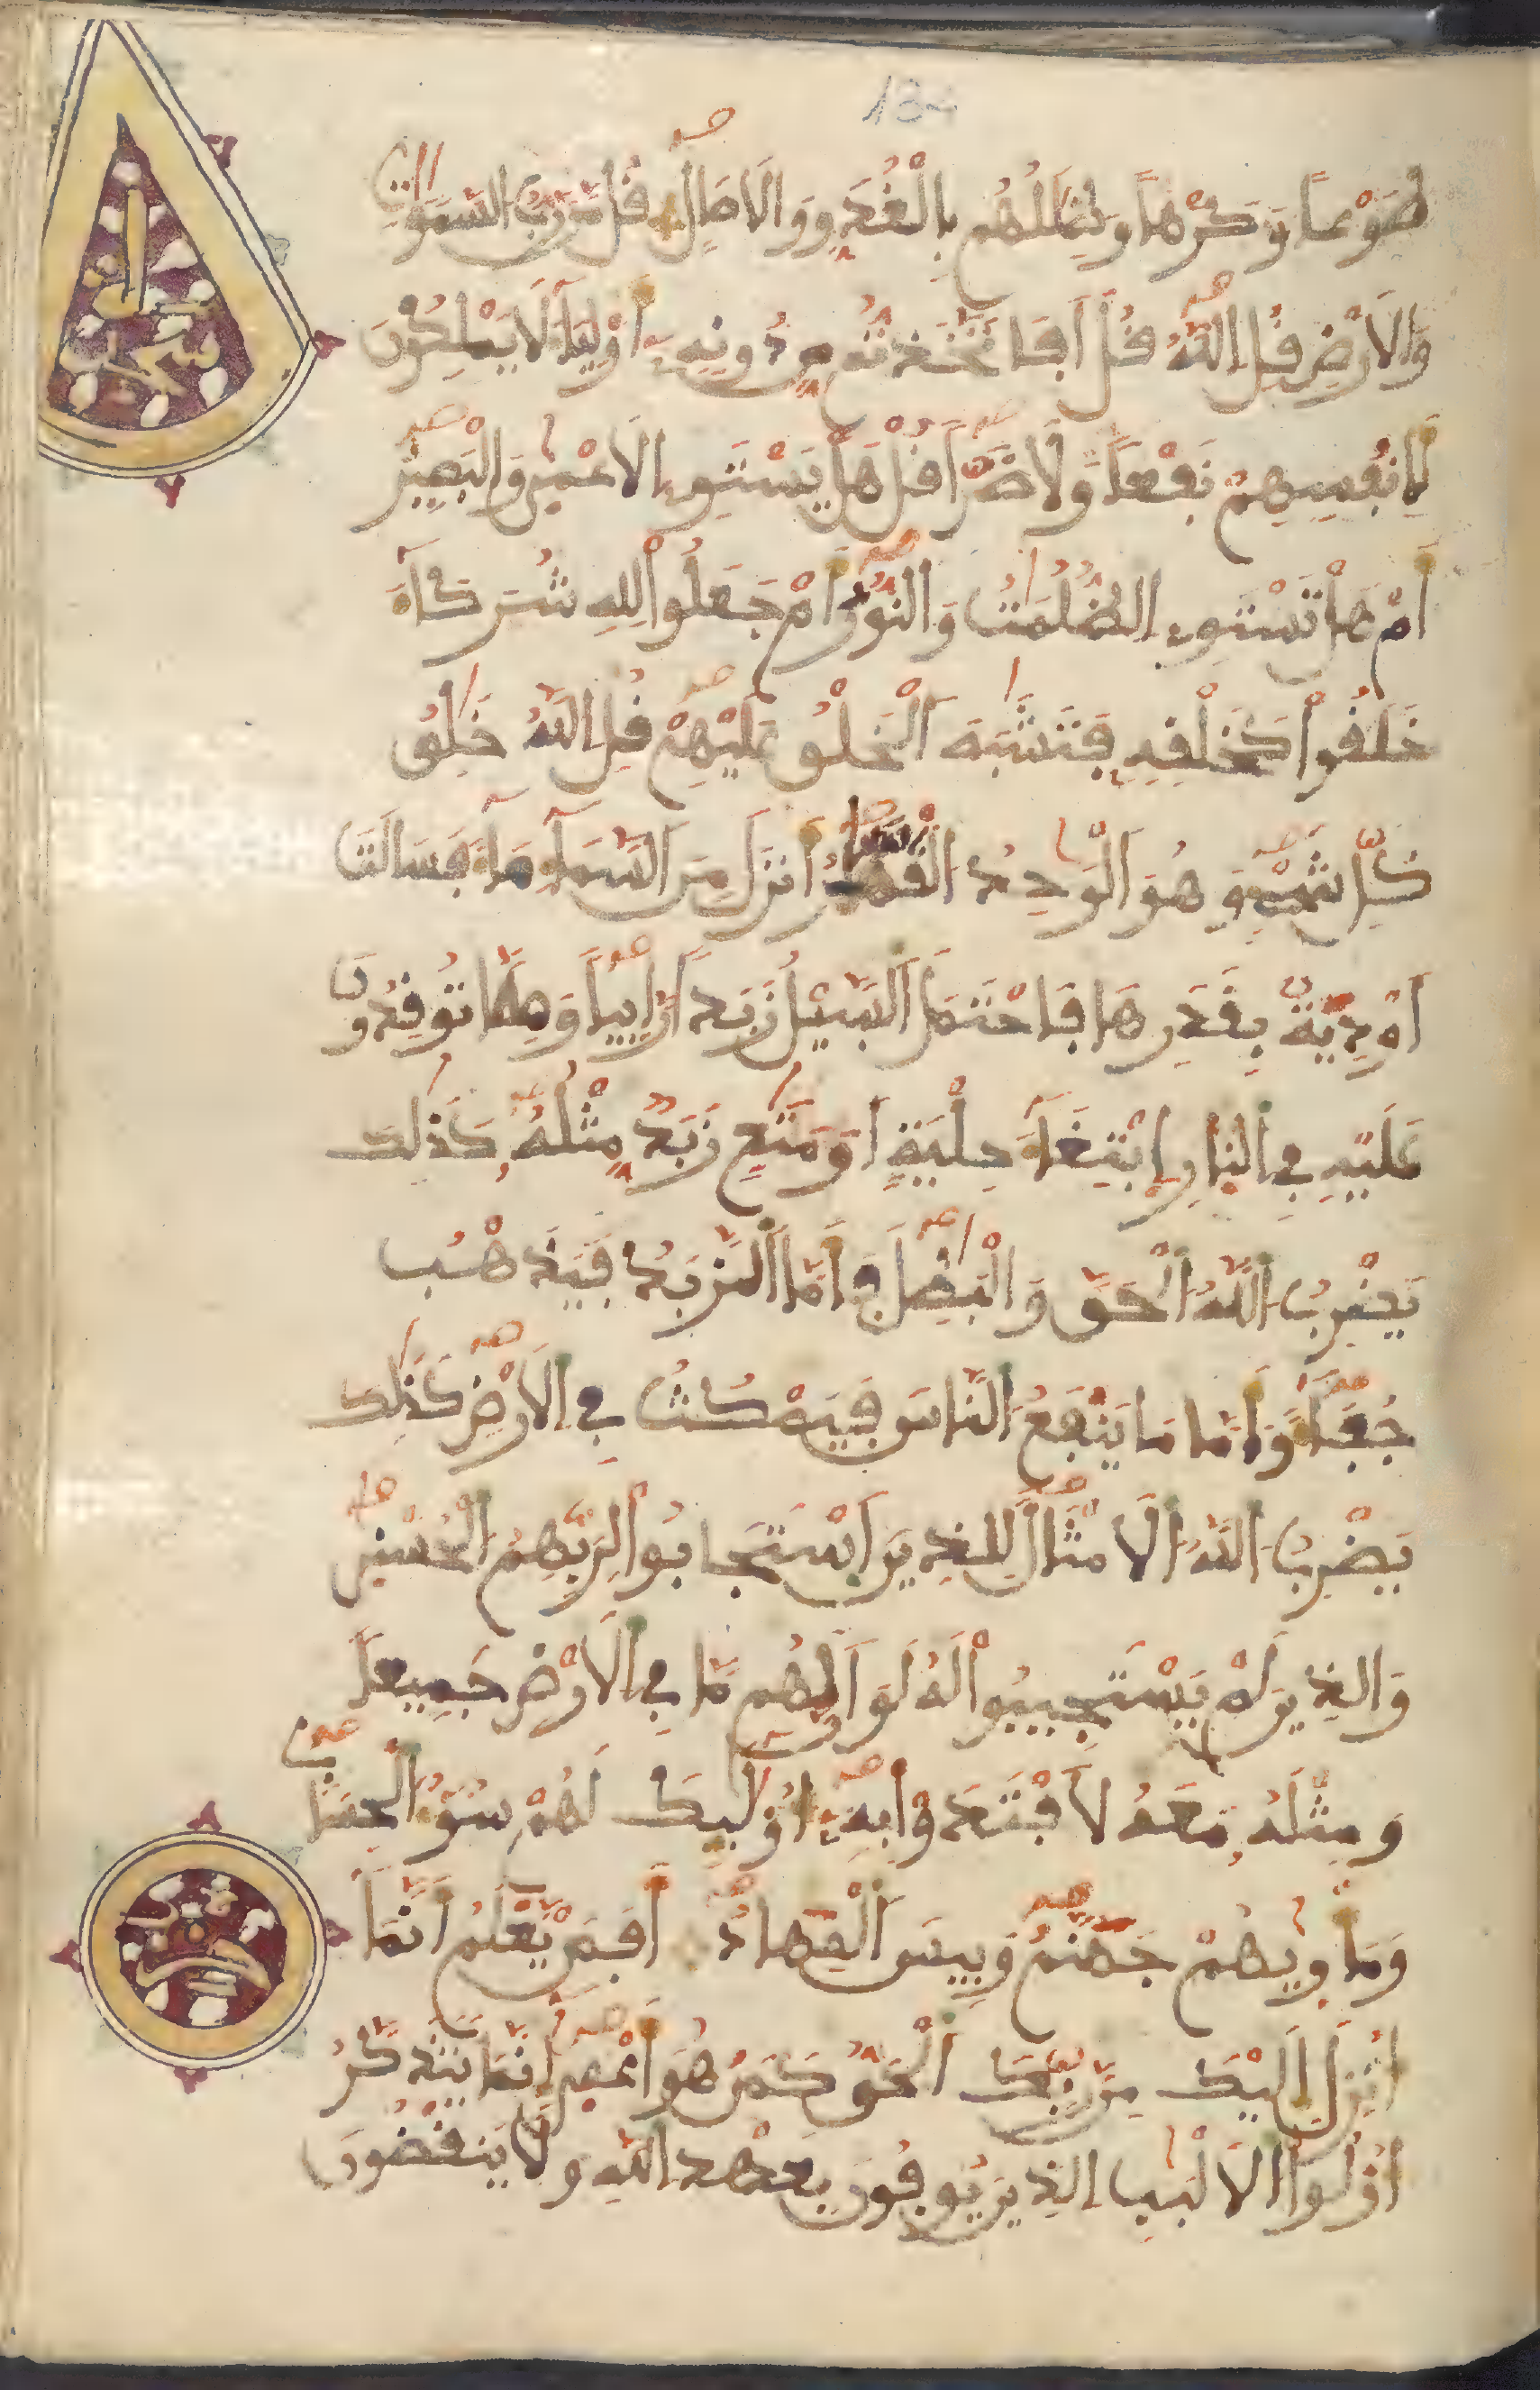 134
طَوْعاً وَكَرْهاً وَظِلَٰلُهُم بِالْغُدُوِّ وَالَاصَالِ قُلْ مَن رَّبُّ السَّمَٰوَٰتِ
وَالَارْضِ قُلِ اِللَّهُ قُلَ اَفَاتَّخَذتُّم مِّن دُونِهِۦٓ أَوْلِيَآءَ لَا يَمْلِكُونَ
لِأَنفُسِهِمْ نَفْعاً وَلَا ضَرّاً قُلْ هَلْ يَسْتَوِے اِلَاعْمَىٰ وَالْبَصِيرُ
أَمْ هَلْ تَسْتَوِے اِلظُّلُمَٰتُ وَالنُّورُ أَمْ جَعَلُواْ لِلهِ شُرَكَآءَ
خَلَقُواْ كَخَلْقِهِۦ فَتَشَٰبَهَ اَلْخَلْقُ عَلَيْهِمْ قُلِ اِللَّهُ خَٰلِقُ
كُلِّ شَےْءٍ وَهُوَ اَلْوَٰحِدُ الْقَهَّٰرُ أَنزَلَ مِنَ اَلسَّمَآءِ مَآءً فَسَالَتَ
اَوْدِيَةٌ بِقَدَرِهَا فَاحْتَمَلَ اَلسَّيْلُ زَبَداً رَّابِياً وَمِمَّا تُوقِدُونَ
عَلَيْهِ فِے اِلنّارِ اِبْتِغَآءَ حِلْيَةٍ اَوْ مَتَٰعٍ زَبَدٌ مِّثْلُهُۥ كَذَٰلِكَ
يَضْرِبُ اُللَّهُ اُلْحَقَّ وَالْبَٰطِلَ فَأَمَّا اَلزَّبَدُ فَيَذْهَبُ
جُفَآءً وَأَمَّا مَا يَنفَعُ اُلنَّاسَ فَيَمْكُثُ فِے اِلَارْضِ كَذَٰلِكَ
يَضْرِبُ اُللَّهُ اُلَامْثَالَ لِلذِينَ اَسْتَجَابُواْ لِرَبِّهِمُ الْحُسْنَىٰ
وَالذِينَ لَمْ يَسْتَجِيبُواْ لَهُۥ لَوَ اَنَّ لَهُم مَّا فِے اِلَارْضِ جَمِيعاً
وَمِثْلَهُۥ مَعَهُۥ لَافْتَدَوْاْ بِهِۦٓ أُوْلَٰٓئِكَ لَهُمْ سُوٓءُ اُلْحِسَابِ
وَمَأْوِيٰهُمْ جَهَنَّمُ وَبِيسَ اَلْمِهَادُ أَفَمَنْ يَّعْلَمُ أَنَّمَآ
أُنزِلَ إِلَيْكَ مِن رَّبِّكَ اَلْحَقُّ كَمَنْ هُوَ أَعْمَىٰ إِنَّمَا يَتَذَكَّرُ
أُوْلُواْ اُلَالْبَٰبِ اِلذِينَ يُوفُونَ بِعَهْدِ اِللَّهِ وَلَا يَنقُضُونَ